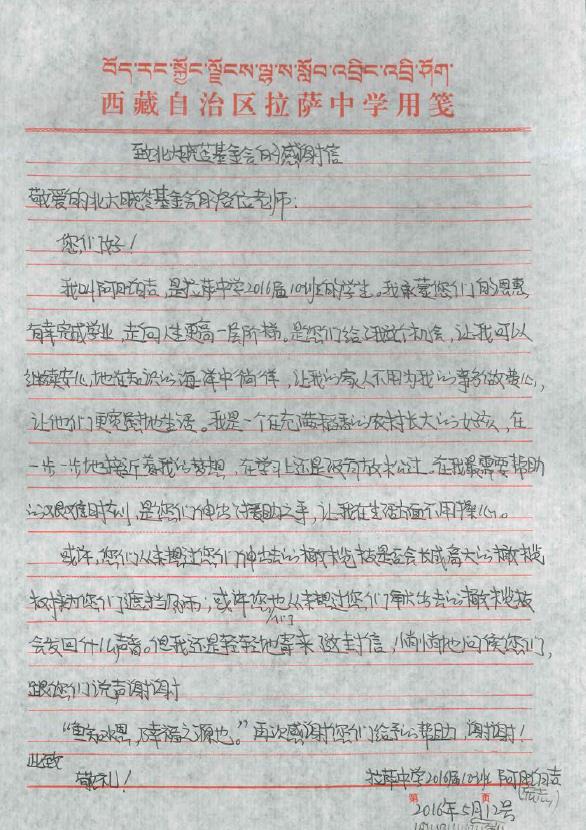 བོད་རང་སྐྱོང་ལྗོངས་ལྷ་ས་སློབ་འབྲིང་འབྲི་ཤོག
西藏自治区拉萨中学用笺
致北大晓芒基金会的感谢信
敬爱的北大晓芒基金会的各位老师：
您们好！
我叫阿旺拥吉，是拉萨中学2016届10班的学生。我承蒙您们的恩惠
有幸完成学业，走向人生更高一层阶梯。是您们给了我这个机会，让我可以
继续安心地在知识的海洋中徜徉，让我的家人不用为我的事多做费心，
让他们更宽慰地生活。我是一个在充满稻香的农村长大的女孩，在
一步一步地接近着我的梦想，在学习上还是没有放松过。在我最需要帮助
的艰难时刻，是您们伸出了援助之手，让我在生活方面不用操心。
或许，您们从未想过您们伸出去的橄榄枝是否会长成高大的橄榄
树为您们遮挡风雨；或许您们也从未想过您们伸出去的橄榄枝
会发回什么声音。但我还是轻轻地寄来这封信，悄悄地问候您们，
跟您们说声谢谢
“鱼知水恩，乃幸福之源也。”再次感谢您们给予的帮助，谢谢！
此致
敬礼！
拉萨中学2016届10班 阿旺拥吉
第 页
2016年5月12号